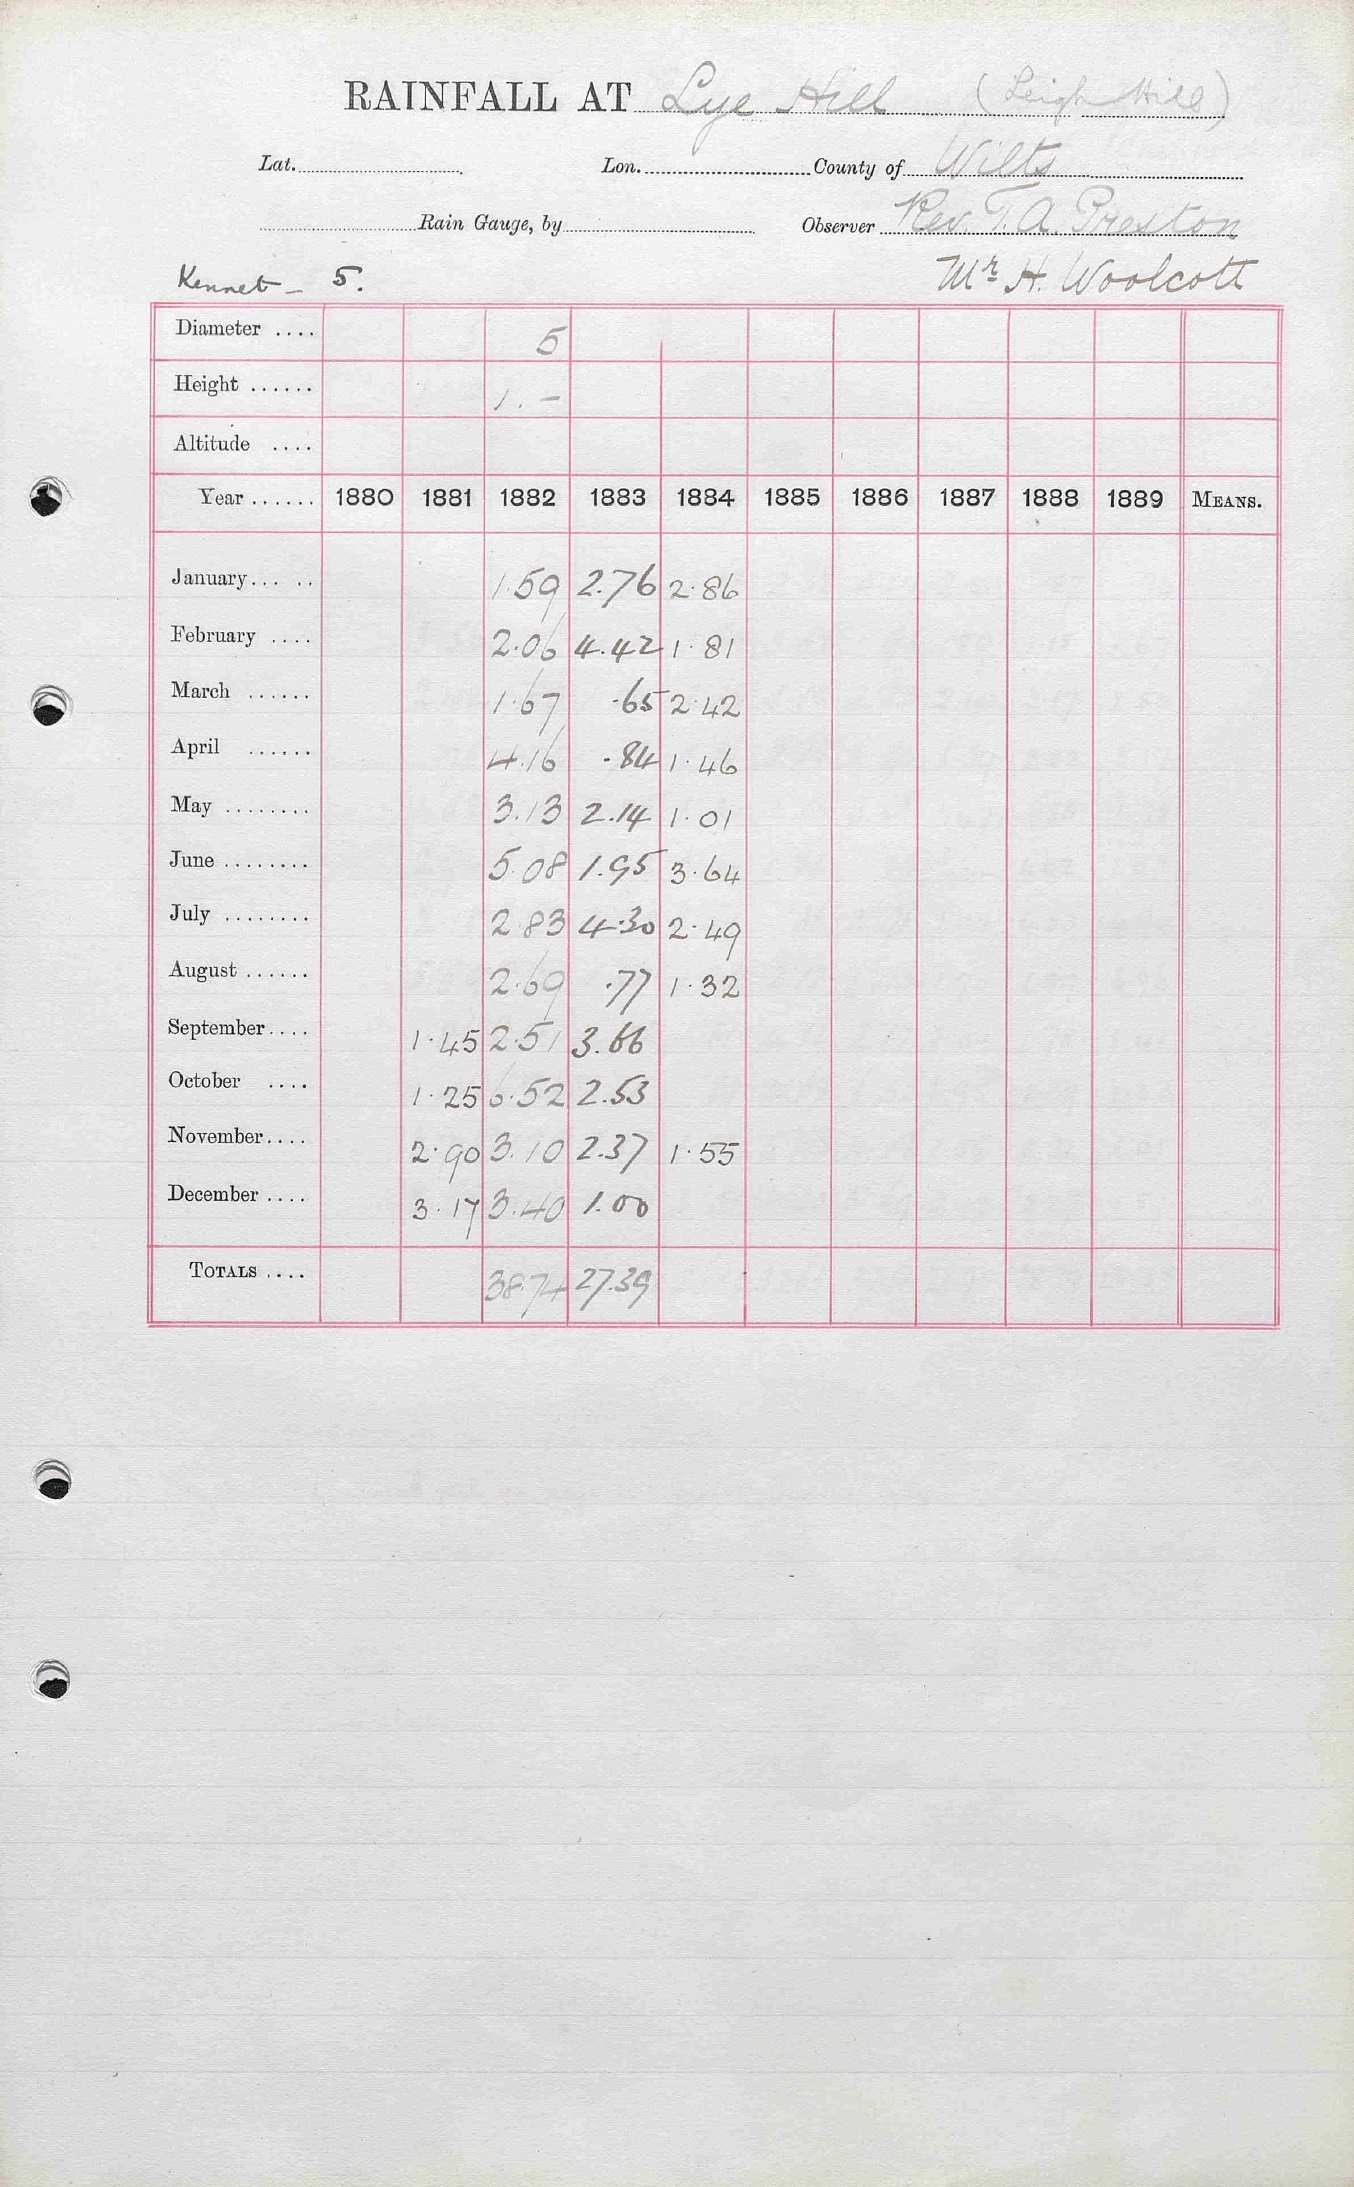 RAINFALL AT Lye Hill (Leigh Hill)
Lat. Lon. County of Wilts
Rain Gauge, by Observer Rev. T. A. Preston
Kennet – 5. Mr H. Woolcott
Diameter .... 5
Height ...... 1. –
Altitude ....
Year ...... 1880 1881 1882 1883 1884 1885 1886 1887 1888 1889 MEANS.
January... .. 1.59 2.76 2.86
February .... 2.06 4.42 1.81
March ...... 1.67 .65 2.42
April ...... 4.16 .84 1.46
May ........ 3.13 2.14 1.01
June ........ 5.08 1.95 3.64
July ........ 2.83 4.30 2.49
August ...... 2.69 .77 1.32
September.... 1.45 2.51 3.66
October .... 1.25 6.52 2.53
November.... 2.90 3.10 2.37 1.55
December .... 3.17 3.40 1.00
TOTALS .... 38.74 27.39